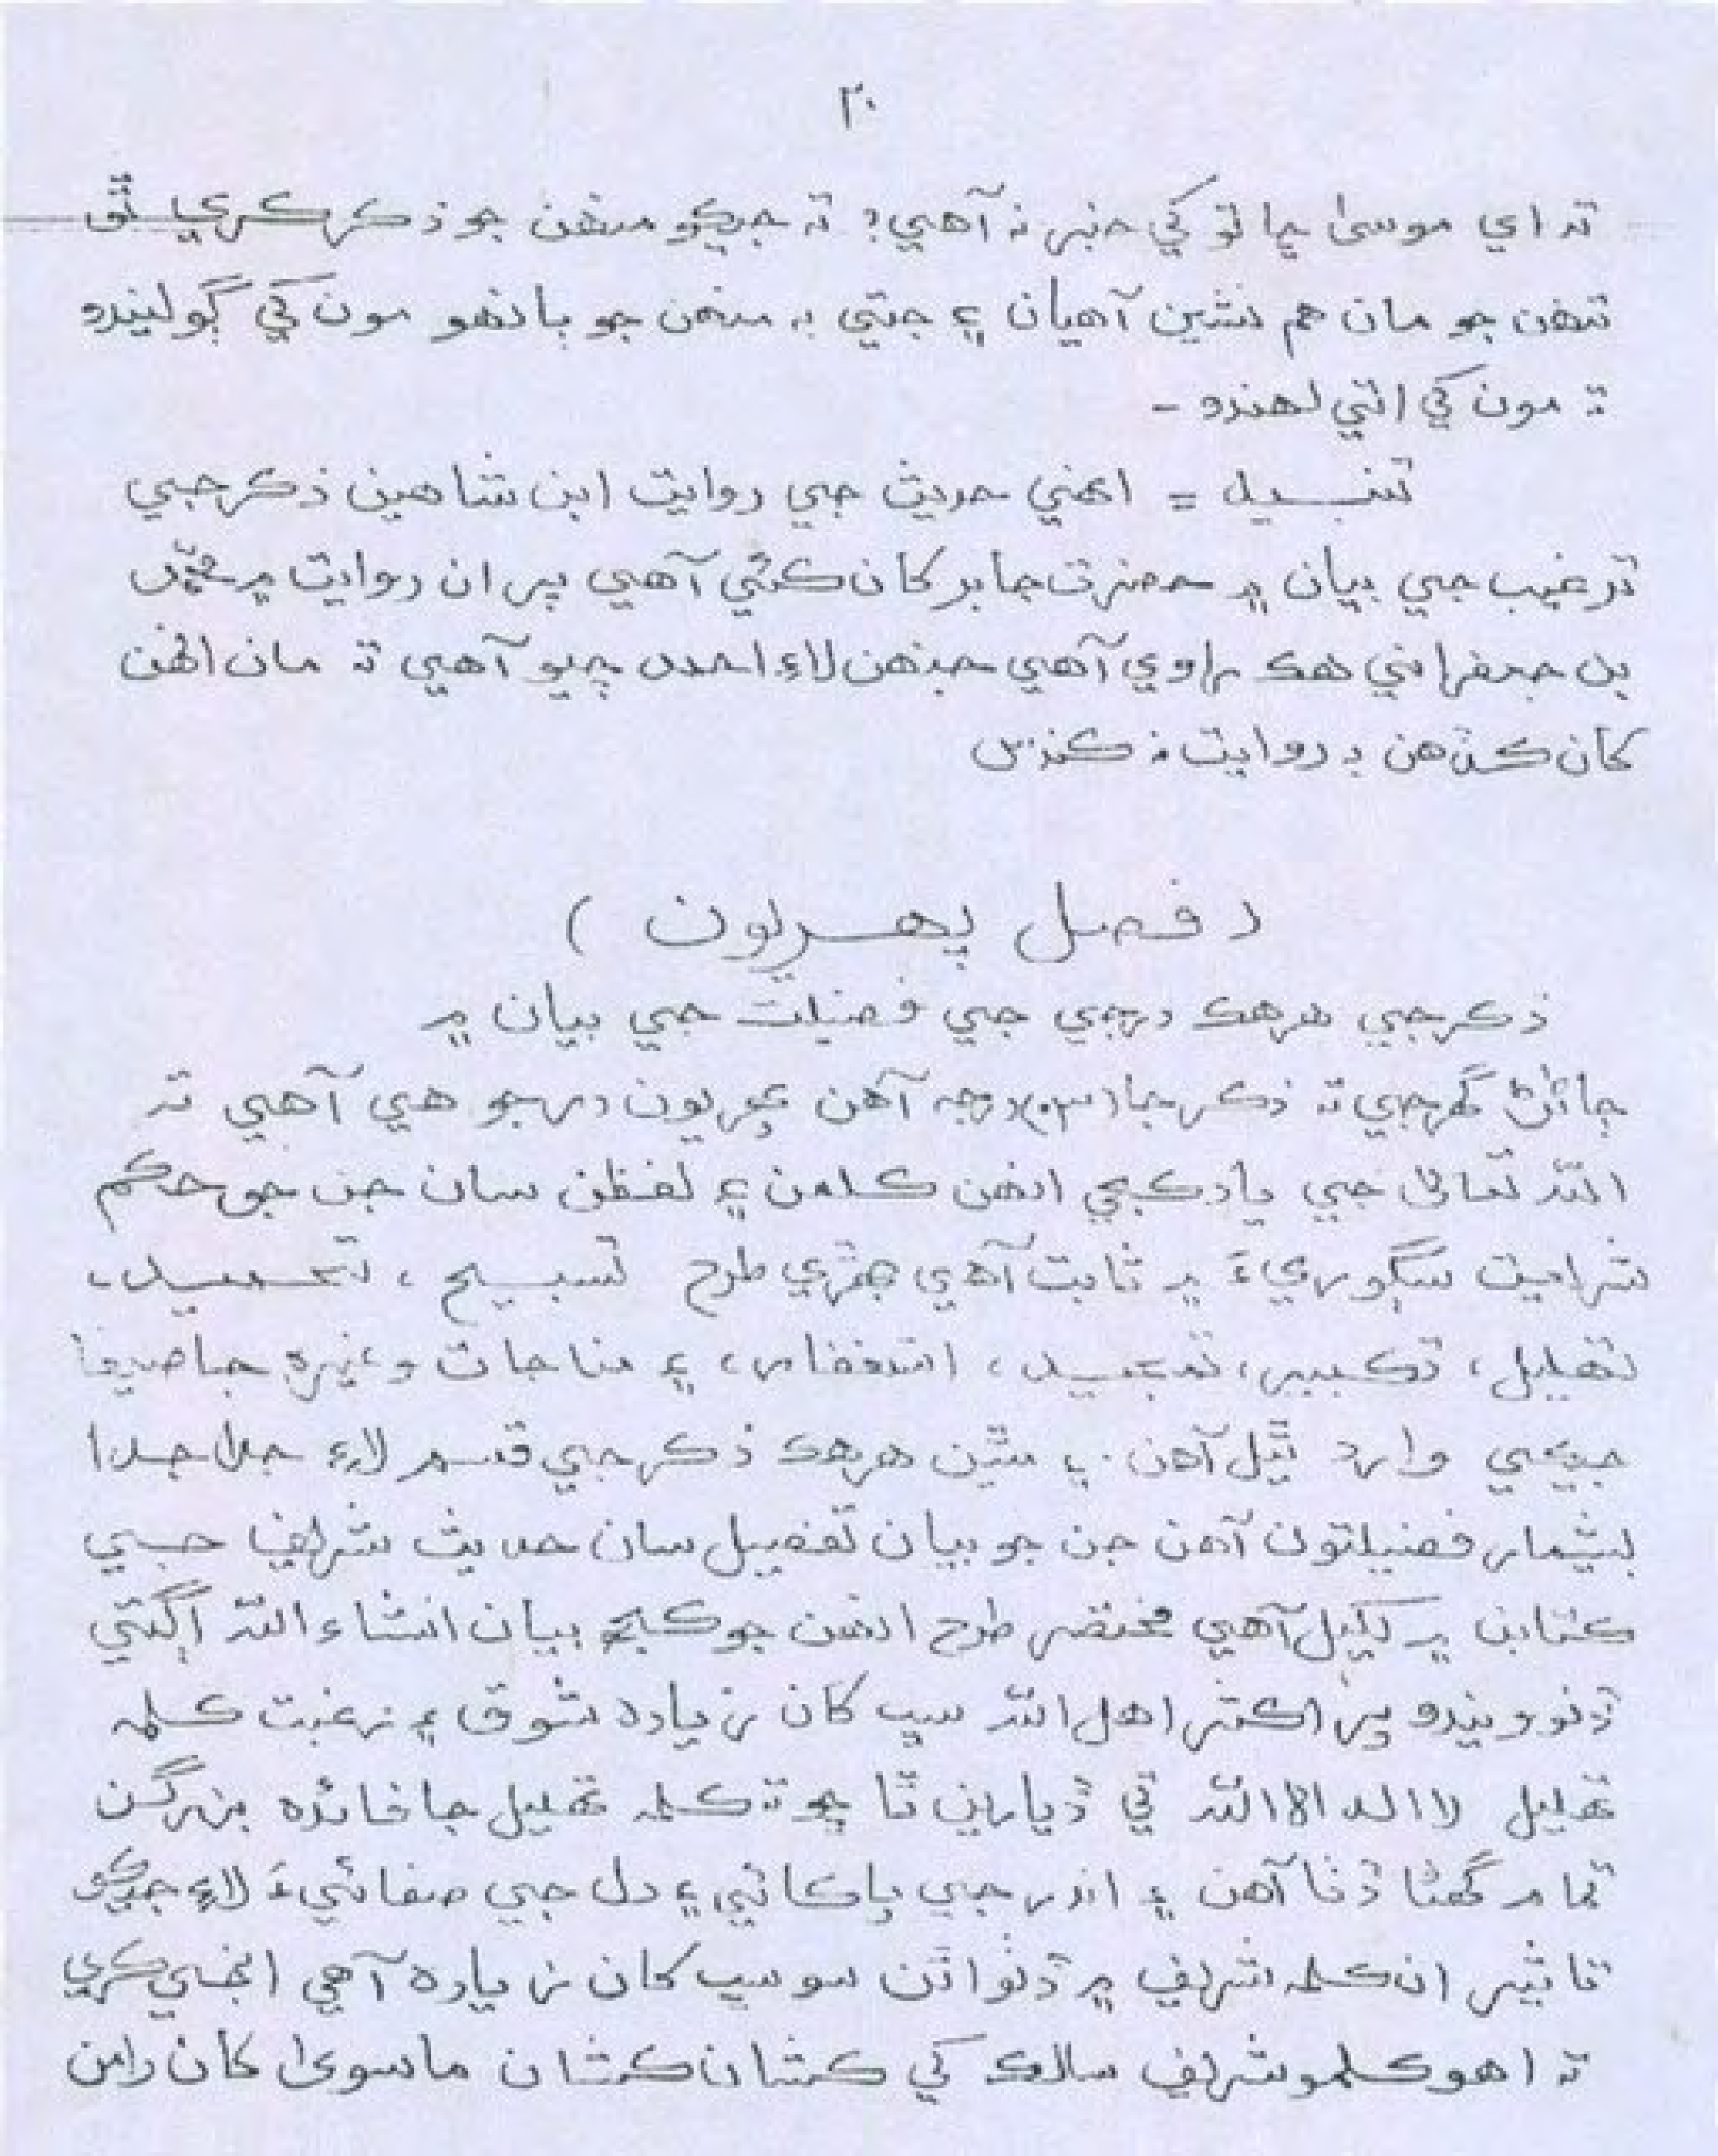 ٢٠
ته اي موسىٰ ڇا توکي خبر نه آهي؟ ته جيڪو منهن جو ذڪر ڪري ٿو
تنهن جو مان هم نشين آهيان ۽ جتي به منهن جو ٻانهو مون کي ڳوليندو
ته مون کي اتي لهندو -
تنبيه = اهڙي حديث جي روايت ابن شاهين ذڪر جي
ترغيب جي بيان ۾ حضرت جابر کان ڪئي آهي پر ان روايت ۾ محمّد
بن جعفر هڪ راوي آهي جنهن لاءِ احمد چيو آهي ته مان انهن
کان ڪڏهن به روايت نه ڪندس
( فصل پهريون )
ذڪر جي هر هڪ درجي جي فضيلت جي بيان ۾
ڄاڻڻ گهرجي ته ذڪر جا (٣) درجه آهن پهريون درجو هي آهي ته
الله تعالىٰ جي ياد ڪجي انهن ڪلمن ۽ لفظن سان جن جو حڪم
شرايت سڳوريءَ ۾ ثابت آهي جهڙي طرح تسبيح ، تحميد ،
تهليل ، تڪبير ، تمجيد ، استغفار ، ۽ مناجات وغيره جا صيغا
جيڪي وارد ٿيل آهن. ۽ مٿين هر هڪ ذڪر جي قسم لاءِ جدا جدا
بيشمار فضيلتون آهن جن جو بيان تفصيل سان حديث شريف جي
ڪتابن ۾ ڪيل آهي مختصر طرح انهن جو ڪجھ بيان انشاء الله اڳتي
ڏنو ويندو پر اڪثر اهل الله سڀ کان زياده شوق ۽ رغبت ڪلمه
تهليل لا اله الا الله تي ڏيارين ٿا ڇو ته ڪلمه تهليل جا فائده بزرگن
تمام گهڻا ڏٺا آهن ۽ اندر جي پاڪائي ۽ دل جي صفائيءَ لاءِ جيڪو
تاثير ان ڪلمه شريف ۾ ڏٺو اٿن سو سڀ کان زياده آهي انهي ڪري
ته اهو ڪلمو شريف سالڪ کي ڪشان ڪشان ماسوىٰ کان